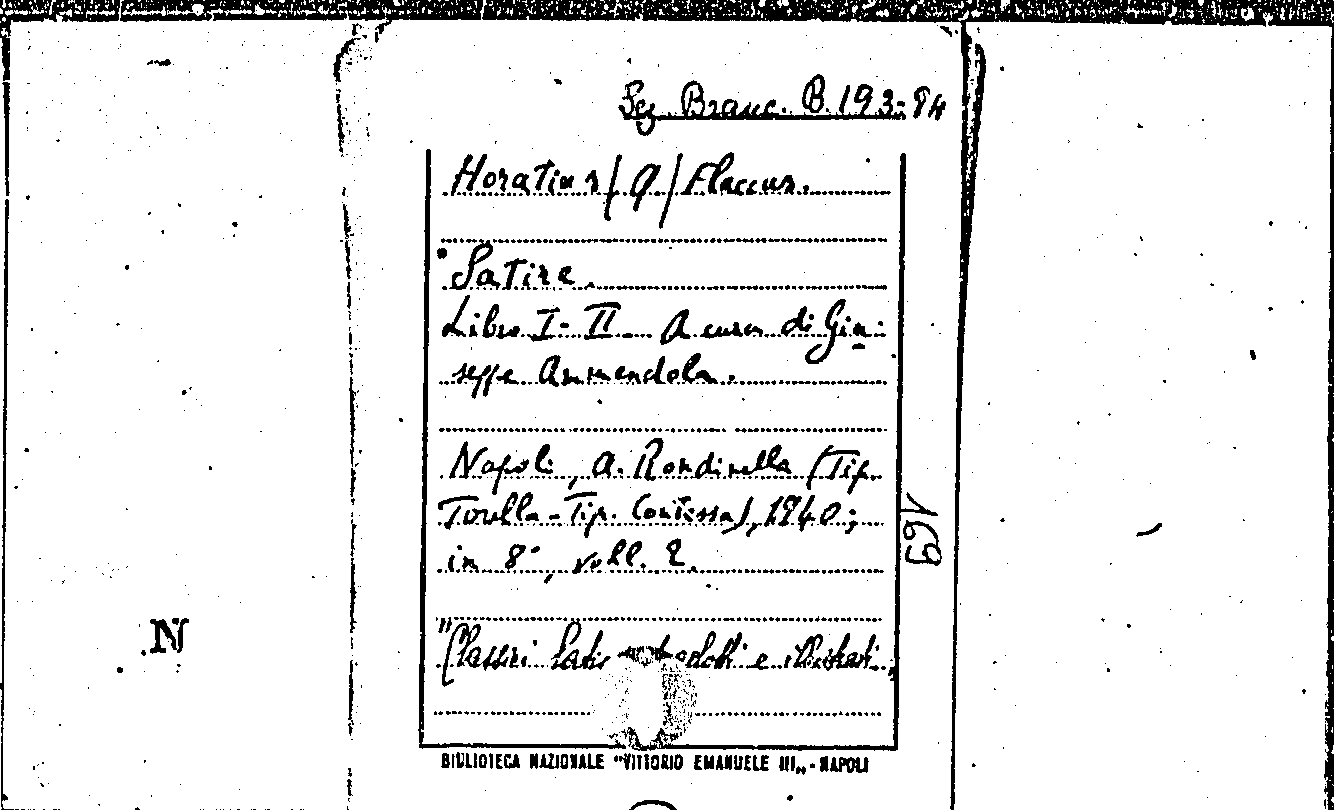 Sez. Branc. B. 193-94
Horatius / Q / Flaccus.
Satire.
Libro I-II. A cura di Giu-
seppe Ammendola.
Napoli, A. Rondinella (Tip.
Torella - Tip. Contessa), 1940;
in 8°, voll. 2.
"Classici Latini tradotti e illustrati„
BIBLIOTECA NAZIONALE "VITTORIO EMANUELE III„ - NAPOLI
169
N